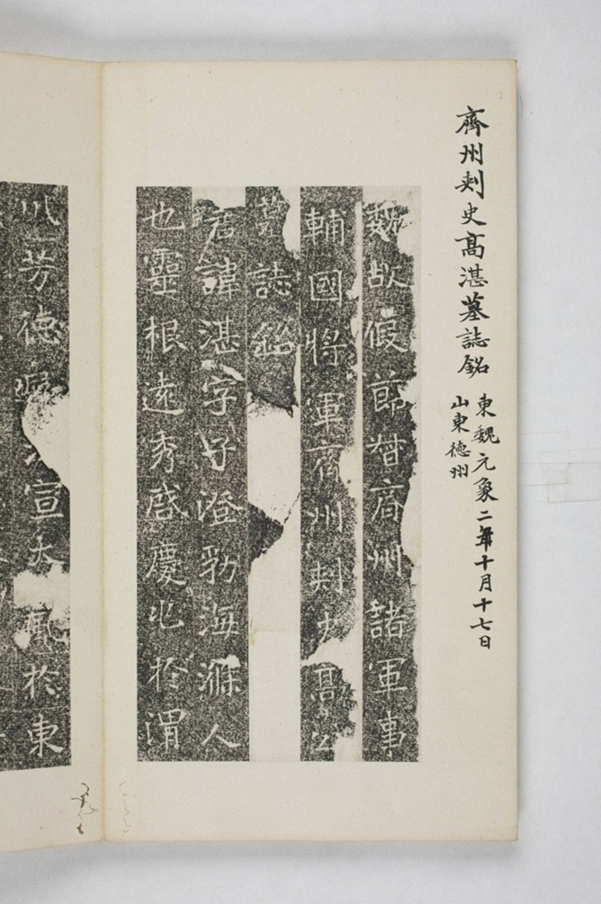 齊州刺史高湛墓誌銘
東魏元象二年十月十七日
山東德州
魏故假節督齊州諸軍事
輔國將軍齊州刺史高公
墓誌銘
君諱湛字子澄勃海滌人
也靈根遠秀啟慶兆於渭
川芳德宣大風於東